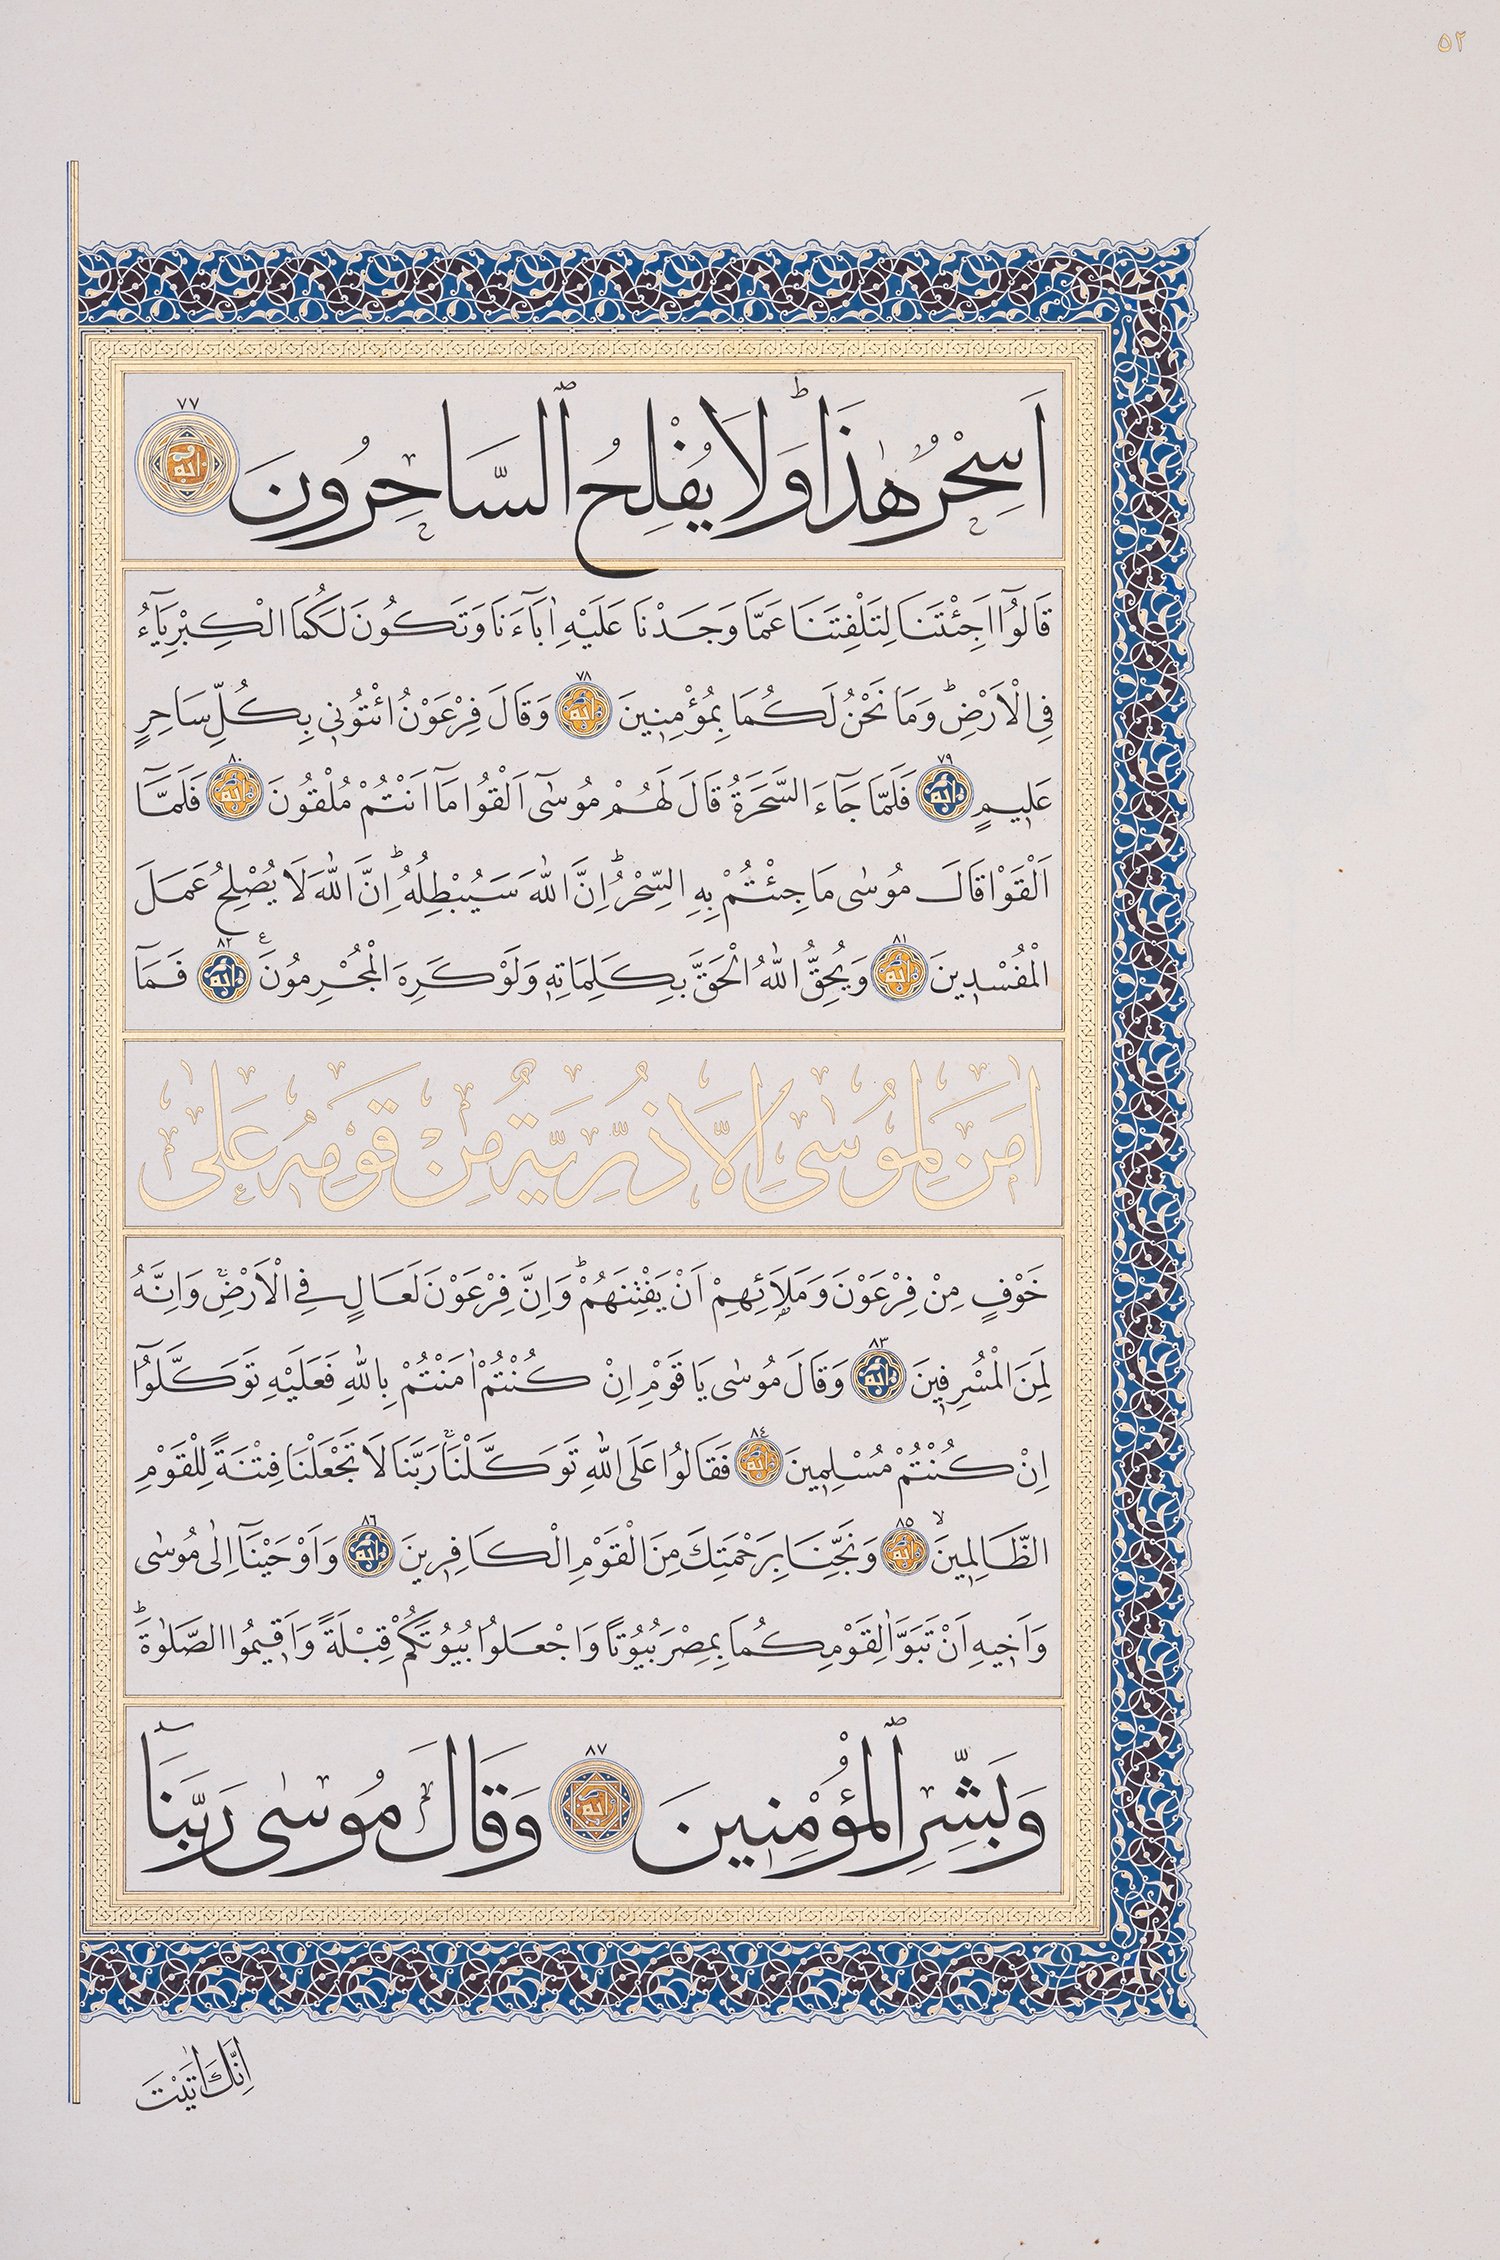 ٥٢
اَسِحْرٌ هٰذَاؕ وَلَا يُفْلِحُ ٱلسَّاحِرُونَ ٧٧
قَالُٓوا اَجِئْتَنَا لِتَلْفِتَنَا عَمَّا وَجَدْنَا عَلَيْهِ اٰبَٓاءَنَا وَتَكُونَ لَكُمَا الْكِبْرِيَٓاءُ
فِي الْاَرْضِؕ وَمَا نَحْنُ لَكُمَا بِمُؤْمِنِينَ ٧٨ وَقَالَ فِرْعَوْنُ ائْتُونِي بِكُلِّ سَاحِرٍ
عَلِيمٍ ٧٩ فَلَمَّا جَٓاءَ السَّحَرَةُ قَالَ لَهُمْ مُوسٰٓى اَلْقُوا مَٓا اَنْتُمْ مُلْقُونَ ٨٠ فَلَمَّٓا
اَلْقَوْا قَالَ مُوسٰى مَا جِئْتُمْ بِهِ السِّحْرُؕ اِنَّ اللّٰهَ سَيُبْطِلُهُؕ اِنَّ اللّٰهَ لَا يُصْلِحُ عَمَلَ
الْمُفْسِدِينَ ٨١ وَيُحِقُّ اللّٰهُ الْحَقَّ بِكَلِمَاتِهٖ وَلَوْ كَرِهَ الْمُجْرِمُونَ ع ٨٢ فَمَٓا
اٰمَنَ لِمُوسٰٓى اِلَّا ذُرِّيَّةٌ مِنْ قَوْمِهٖ عَلٰى
خَوْفٍ مِنْ فِرْعَوْنَ وَمَلَا۬ئِهِمْ اَنْ يَفْتِنَهُمْؕ وَاِنَّ فِرْعَوْنَ لَعَالٍ فِي الْاَرْضِۚ وَاِنَّهُ
لَمِنَ الْمُسْرِفِينَ ٨٣ وَقَالَ مُوسٰى يَا قَوْمِ اِنْ كُنْتُمْ اٰمَنْتُمْ بِاللّٰهِ فَعَلَيْهِ تَوَكَّلُٓوا
اِنْ كُنْتُمْ مُسْلِمِينَ ٨٤ فَقَالُوا عَلَى اللّٰهِ تَوَكَّلْنَاۚ رَبَّنَا لَا تَجْعَلْنَا فِتْنَةً لِلْقَوْمِ
الظَّالِمِينَۙ ٨٥ وَنَجِّنَا بِرَحْمَتِكَ مِنَ الْقَوْمِ الْكَافِرِينَ ٨٦ وَاَوْحَيْنَٓا اِلٰى مُوسٰى
وَاَخِيهِ اَنْ تَبَوَّاٰ لِقَوْمِكُمَا بِمِصْرَ بُيُوتًا وَاجْعَلُوا بُيُوتَكُمْ قِبْلَةً وَاَقِيمُوا الصَّلٰوةَؕ
وَبَشِّرِ ٱلْمُؤْمِنِينَ ٨٧ وَقَالَ مُوسٰى رَبَّنَٓا
اِنَّكَ اٰتَيْتَ